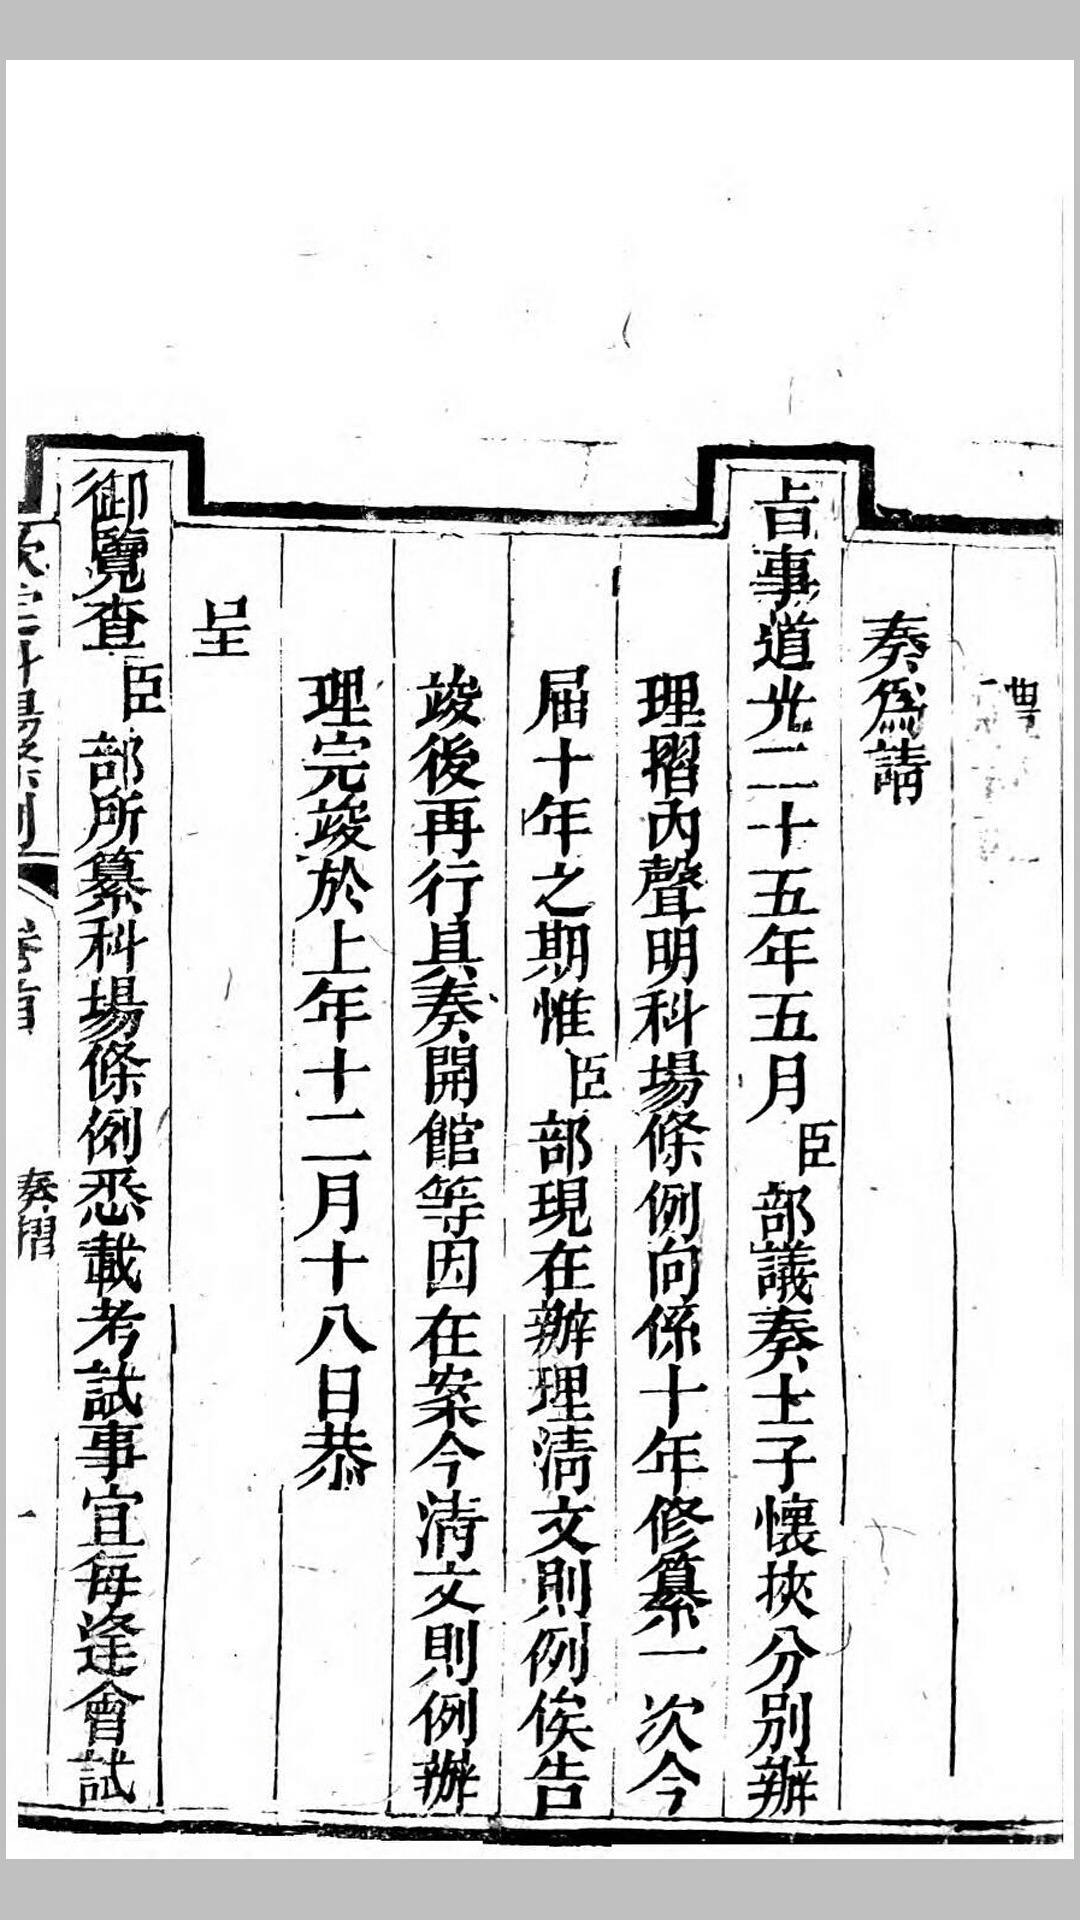 奏為請
旨事道光二十五年五月臣部議奏士子懷挾分別辦
理摺內聲明科場條例向係十年修纂一次今
屆十年之期惟臣部現在辦理清文則例俟告
竣後再行具奏開館等因在案今清文則例辦
理完竣於上年十二月十八日恭
呈
御覽查臣部所纂科場條例悉載考試事宜每逢會試
欽定科場條例 卷首 奏摺 一